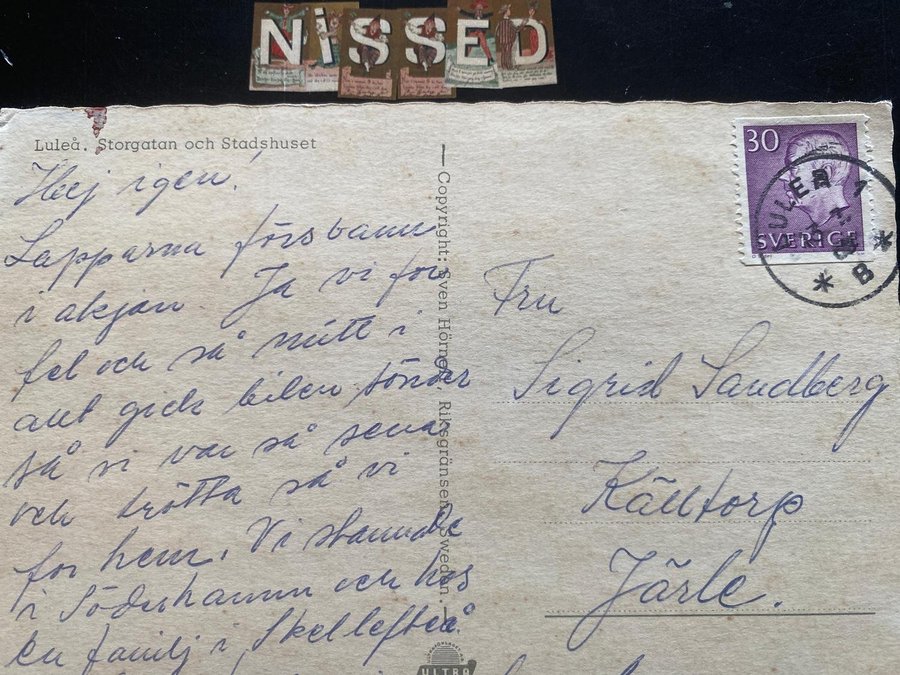 NiSSED
Luleå. Storgatan och Stadshuset
Hej igen!
Lapparna försvann
i akjan. Ja vi for
fel och så mitt i
allt gick bilen sönder
så vi var så sena
och trötta så vi
for hem. Vi stannade
i Söderhamn och hos
en familj i Skellefteå.
— Copyright: Sven Hörnell, Riksgränsen, Sweden. —
ULTRA
30
SVERIGE
LULEÅ 1
B
Fru
Sigrid Sandberg
Källtorp
Järle.